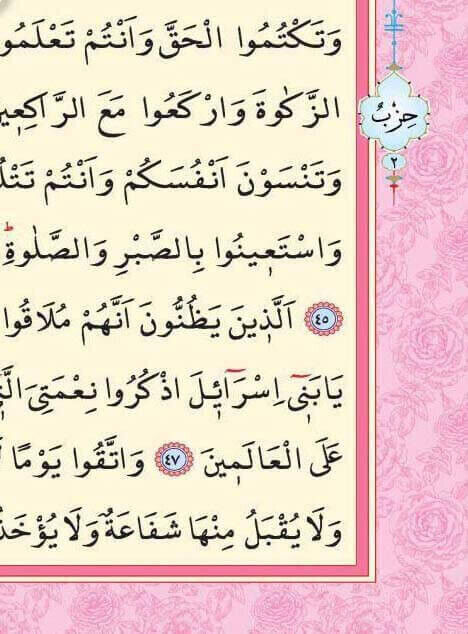 وَتَكْتُمُوا الْحَقَّ وَاَنْتُمْ تَعْلَمُو
الزَّكٰوةَ وَارْكَعُوا مَعَ الرَّاكِع۪ي
وَتَنْسَوْنَ اَنْفُسَكُمْ وَاَنْتُمْ تَتْلُ
وَاسْتَع۪ينُوا بِالصَّبْرِ وَالصَّلٰوةِۜ
٤٥ اَلَّذ۪ينَ يَظُنُّونَ اَنَّهُمْ مُلَاقُوا
يَابَن۪ٓى اِسْرَٓائ۪لَ اذْكُرُوا نِعْمَتِىَ الَّت۪
عَلَى الْعَالَم۪ينَ ٤٧ وَاتَّقُوا يَوْمًا
وَلَا يُقْبَلُ مِنْهَا شَفَاعَةٌ وَلَا يُؤْخَذُ
حِزْبُ
٢